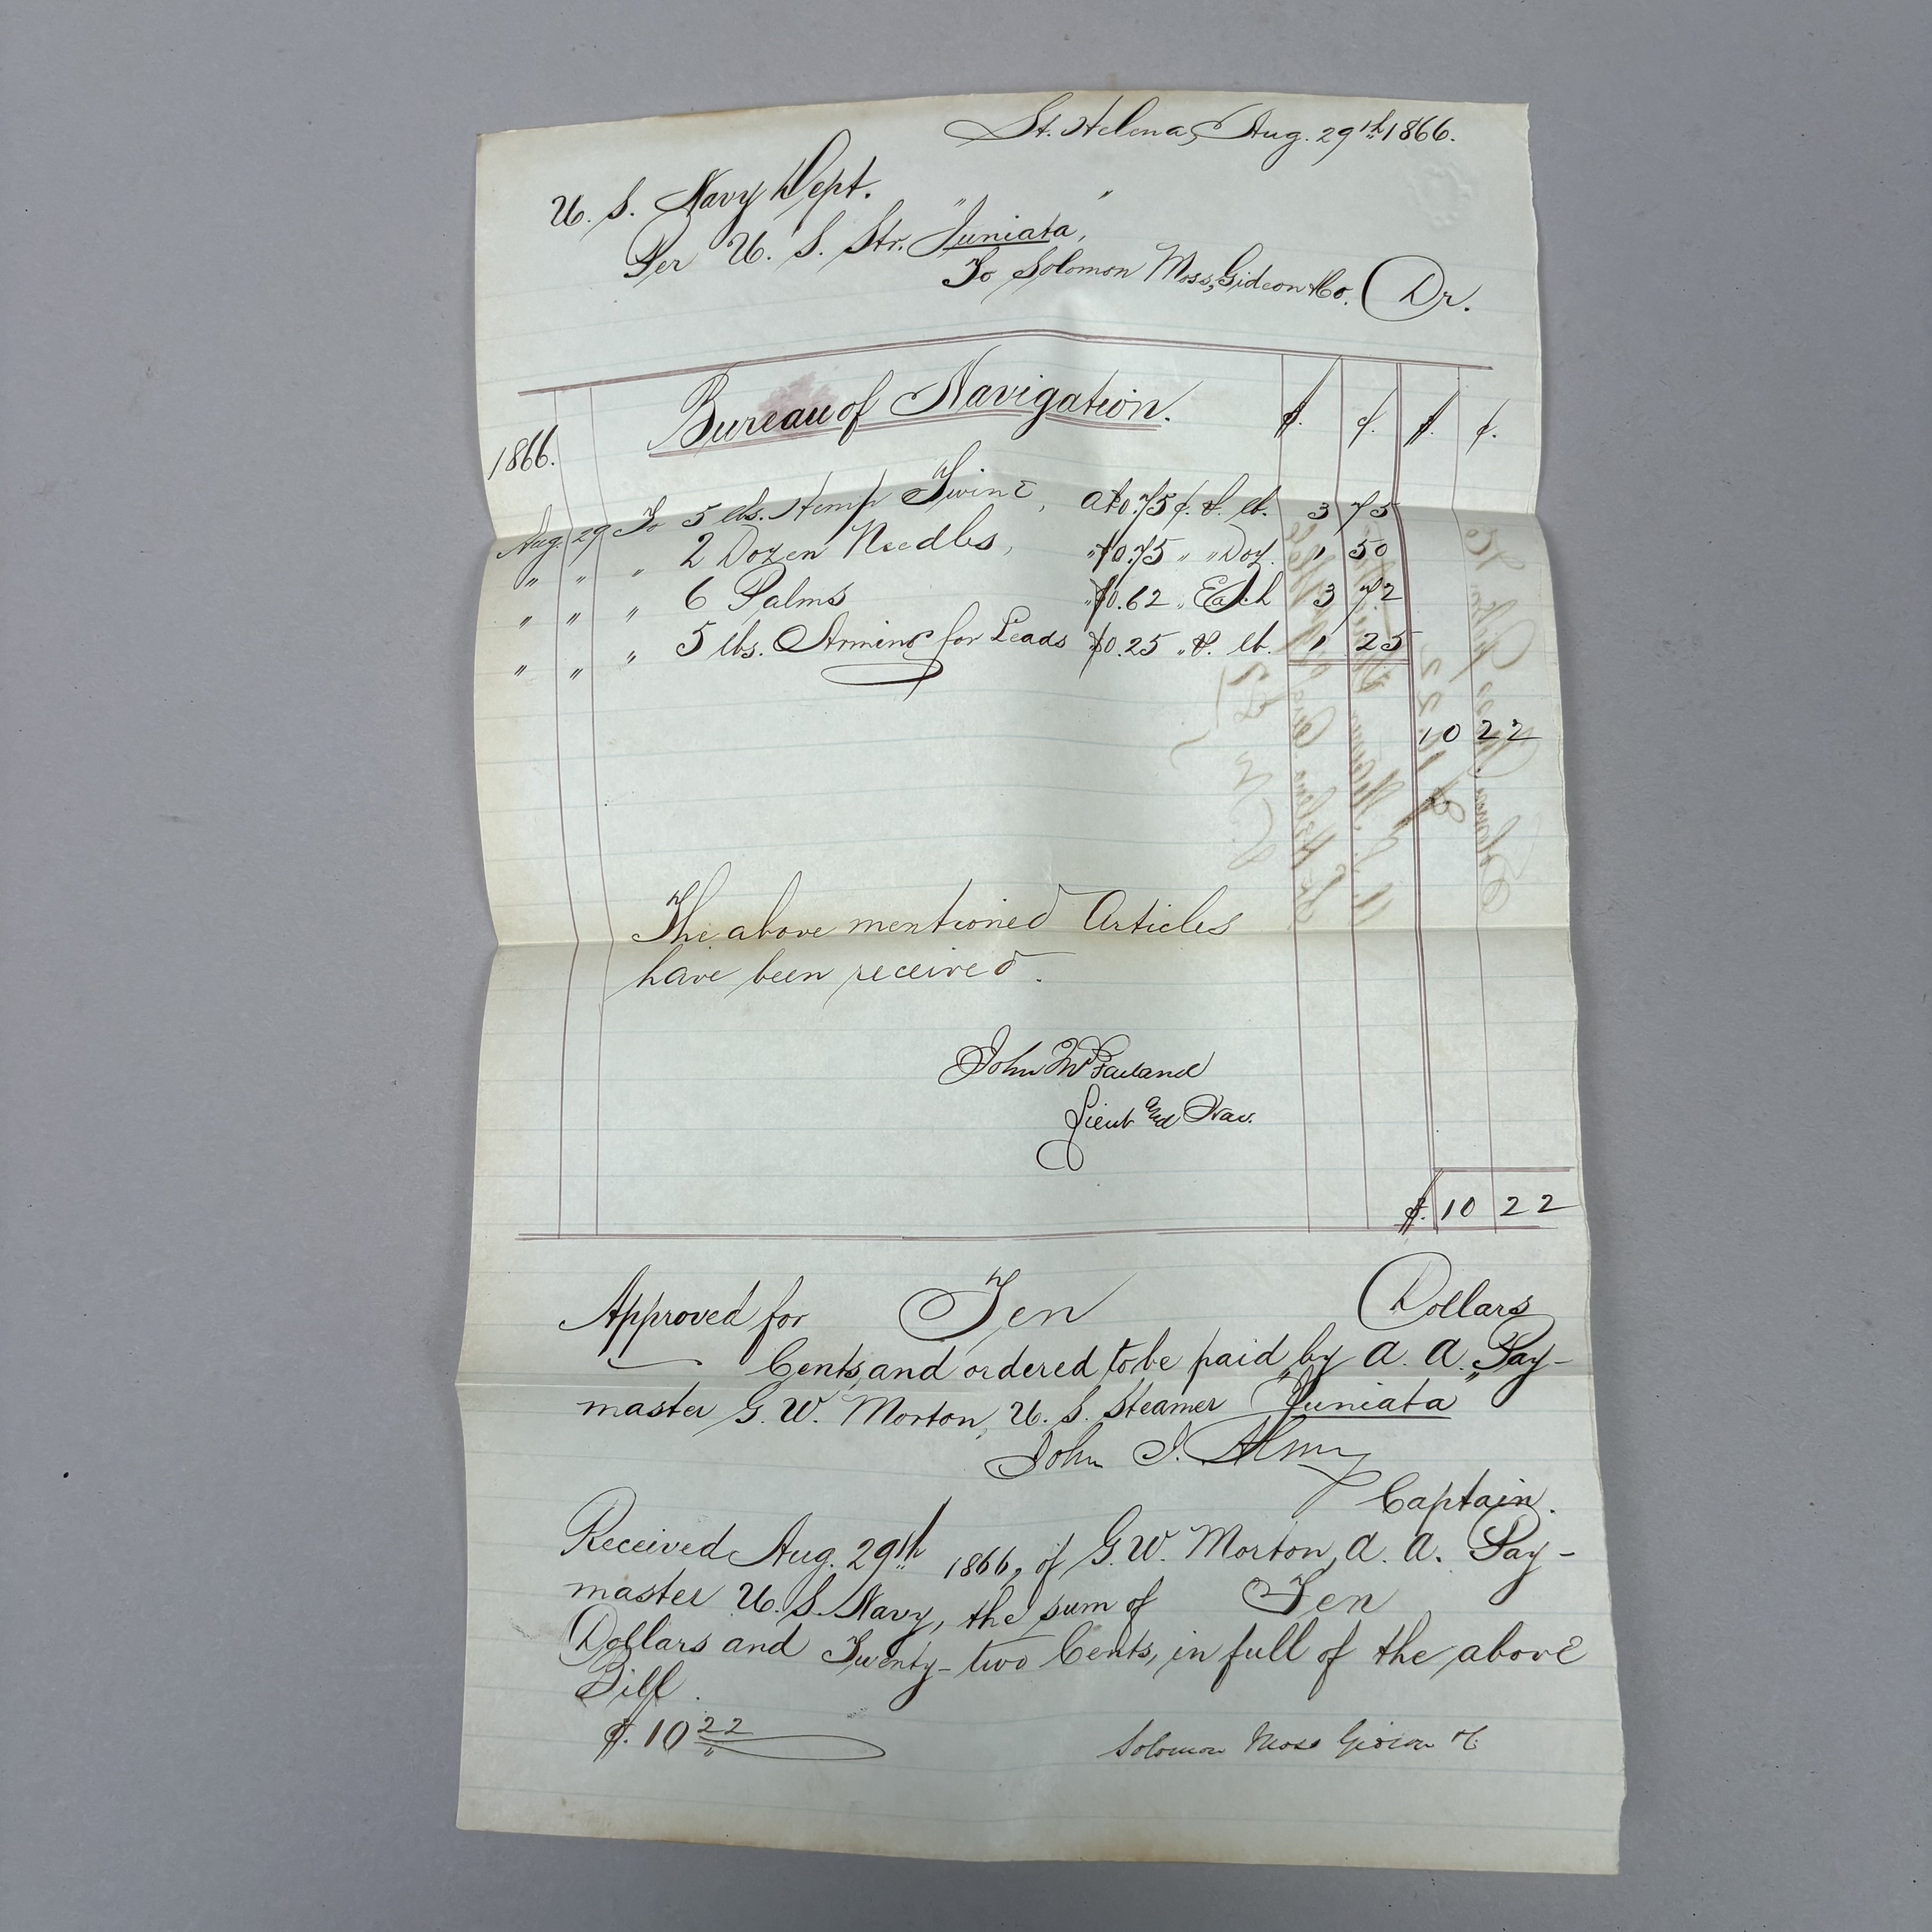 St. Helena, Aug. 29th 1866.
U. S. Navy Dept.
Per U. S. Str. "Juniata",
To Solomon Moss, Gideon & Co. Dr.
Bureau of Navigation. $. ¢. $. ¢.
1866.
Aug. 29 To 5 lbs. Hemp Twine, at $0.75 ¢. P. lb. 3 75
" " " 2 Dozen Needles, " $0.75 " " Doz. 1 50
" " " 6 Palms " $0.62 " Each 3 72
" " " 5 lbs. Arming for Leads $0.25 " P. lb. 1 25
10 22
The above mentioned Articles
have been received.
John McFarland
Lieut and Nav.
$. 10 22
Approved for Ten Dollars
Cents, and ordered to be paid by A. A. Pay-
master G. W. Morton, U. S. Steamer "Juniata"
John J. Almy
Captain.
Received Aug. 29th 1866, of G. W. Morton, A. A. Pay-
master U. S. Navy, the sum of Ten
Dollars and Twenty-two Cents, in full of the above
Bill.
$. 10 22
Solomon Moss Gideon & Co